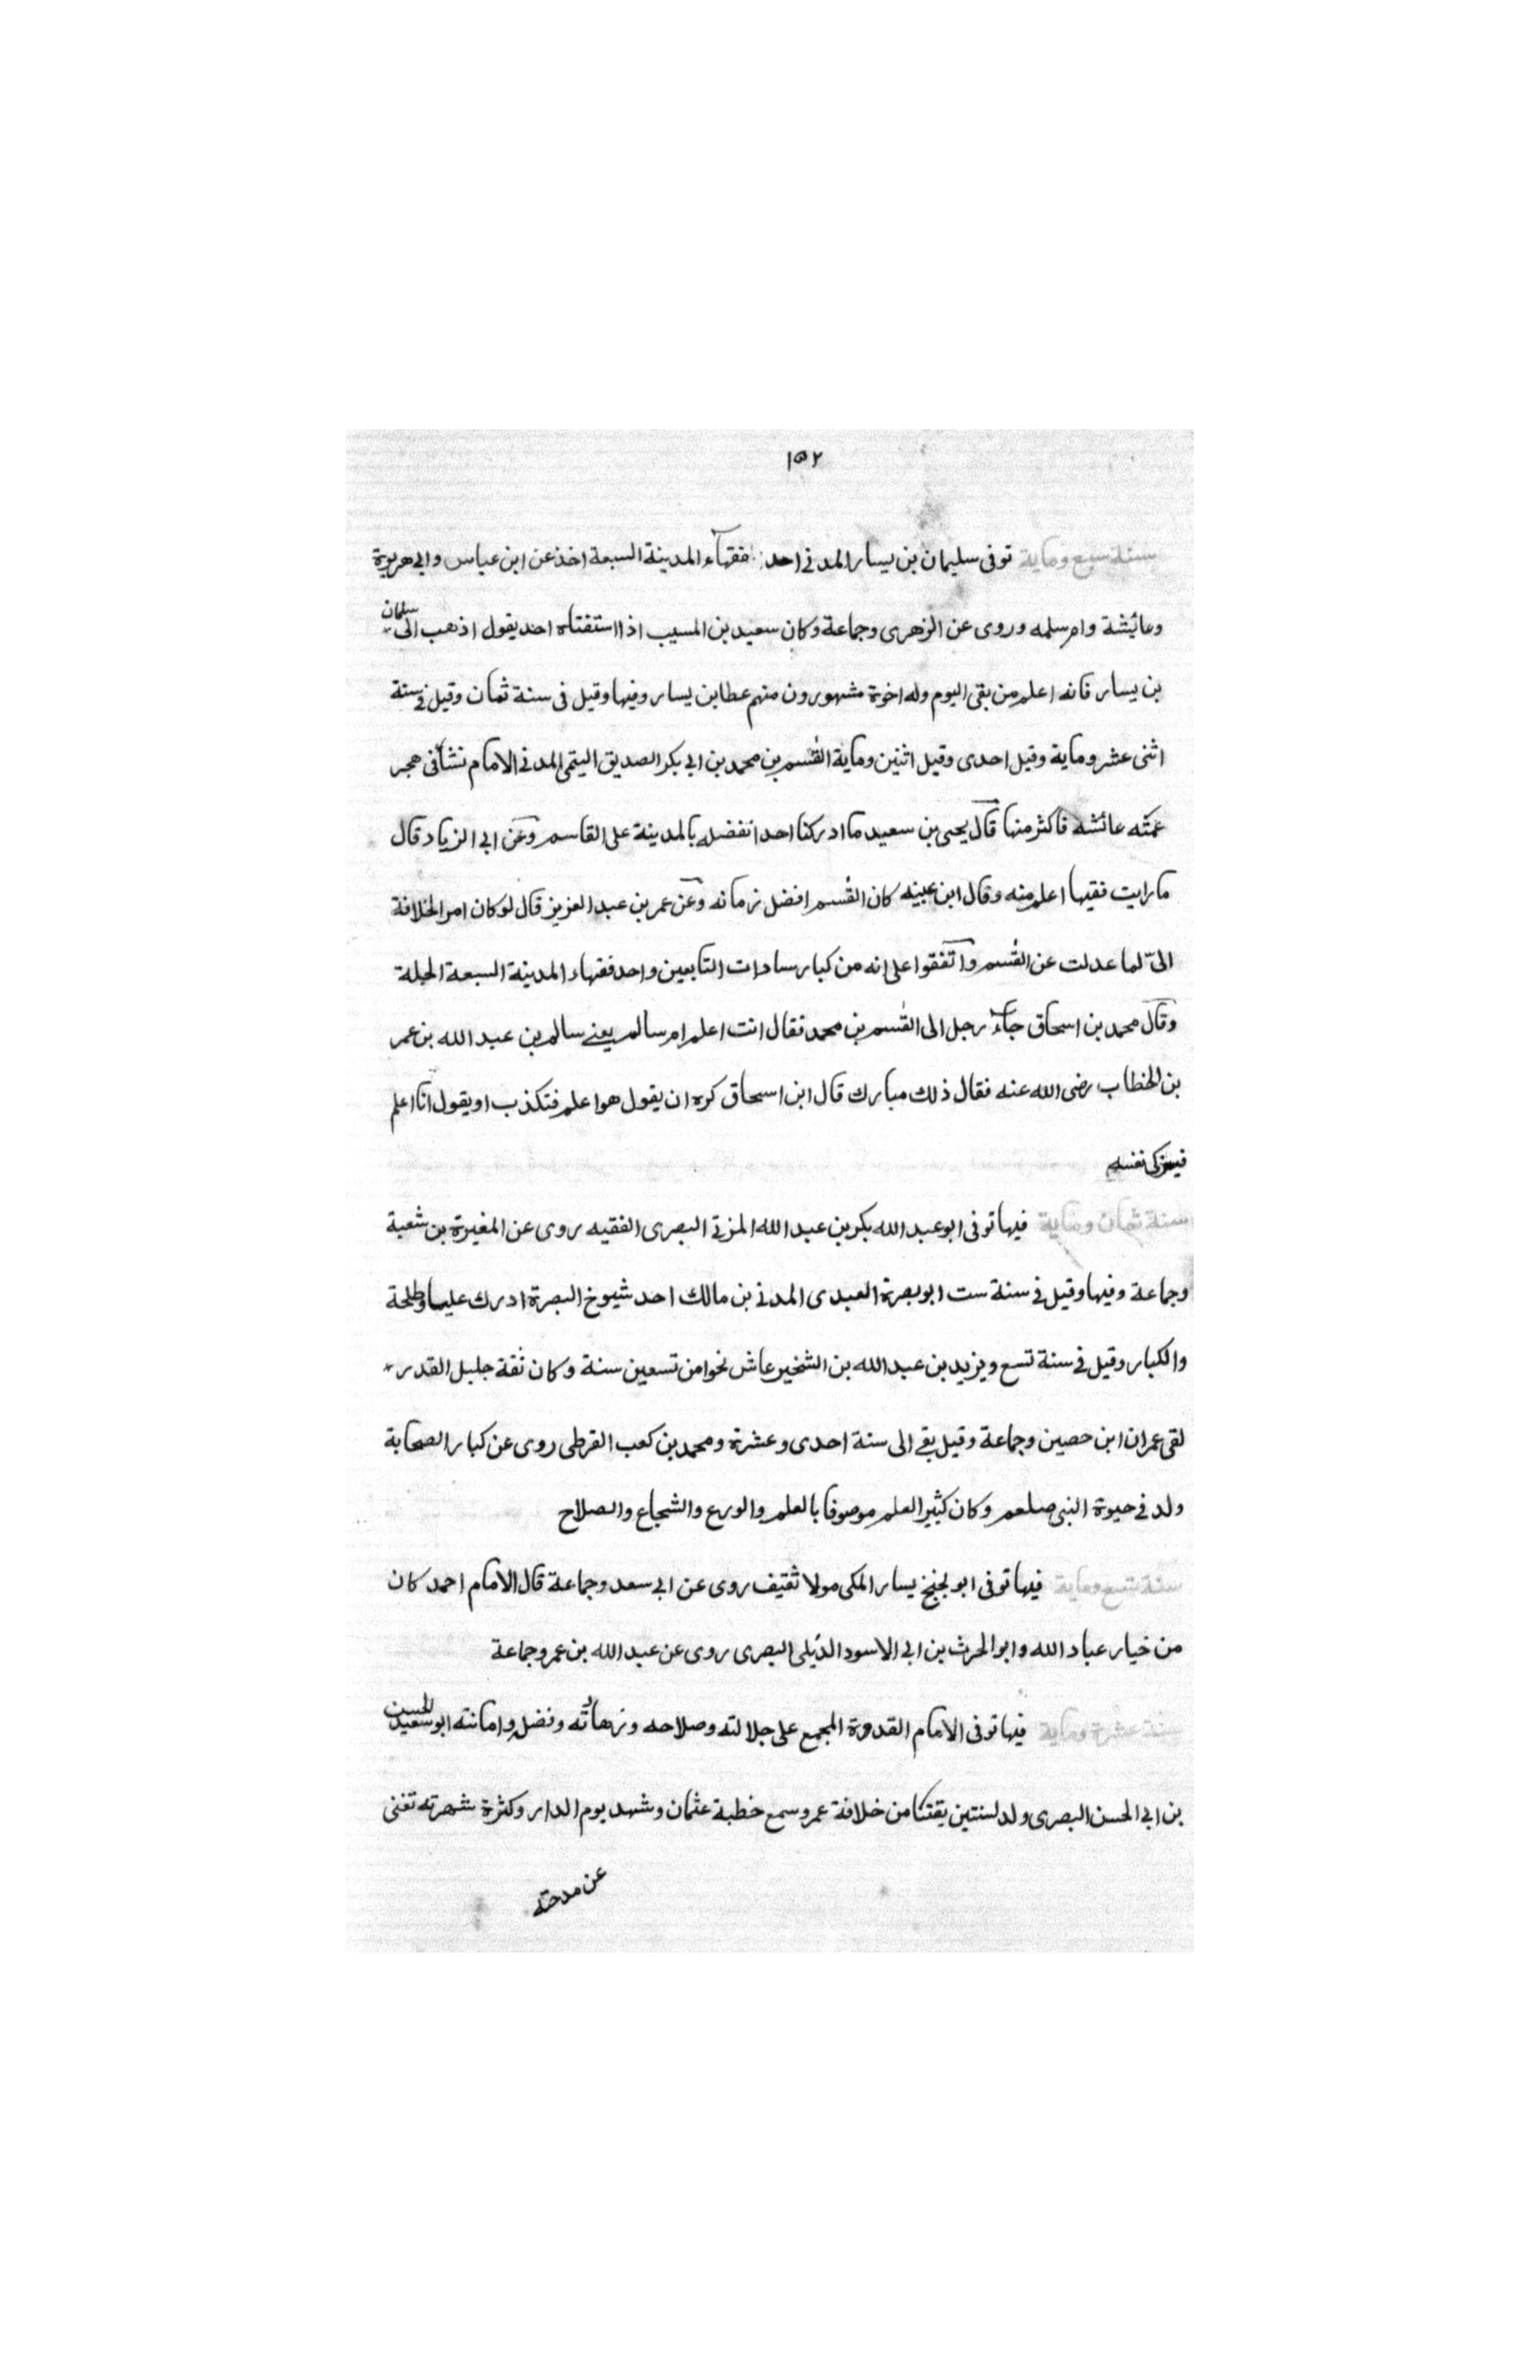 ١٥٢
سنة سبع وماية توفى سليمان بن يسار المدنى احد فقهآء المدينة السبعة اخذ عن ابن عباس وابى هريرة
وعائيشة وام سلمه وروى عن الزهرى وجماعة وكان سعيد بن المسيب اذا استفتاه احد يقول اذهب الى سلمان
بن يسار فانه اعلم من بقى اليوم وله اخوة مشهورون منهم عطا بن يسار وفيها وقيل فى سنة ثمان وقيل فى سنة
اثنى عشر وماية وقيل احدى وقيل اثنين وماية القسم بن محمد بن ابى بكر الصديق اليتمى المدنى الامام نشأ فى حجر
عمّته عائشه فاكثر منها قال يحيى بن سعيد ما ادركنا احدا نفضله بالمدينة على القاسم وعن ابى الزياد قال
ما رايت فقيها اعلم منه وقال ابن عيينه كان القسم افضل زمانه وعن عمر بن عبد العزيز قال لو كان امر الخلافة
الىّ لما عدلت عن القسم واتفقوا على انه من كبار سادات التابعين واحد فقهاء المدينة السبعة الجلة
وقال محمد بن اسحاق جآء رجل الى القسم بن محمد فقال انت اعلم ام سالم يعنے سالم بن عبد الله بن عمر
بن الخطاب رضى الله عنه فقال ذلك مبارك قال ابن اسحاق كره ان يقول هو اعلم فتكذب او يقول انا اعلم
فيزكى نفسه
سنة ثمان وماية فيها توفى ابو عبد الله بكر بن عبد الله المزنى البصرى الفقيه روى عن المغيرة بن شعبة
وجماعة وفيها وقيل فى سنة ست ابو بصرة العبدى المدنى بن مالك احد شيوخ البصرة ادرك عليا وطلحة
والكبار وقيل فى سنة تسع ويزيد بن عبد الله بن الشخير عاش نحوا من تسعين سنة وكان ثقة جليل القدر
لقى عمران ابن حصين وجماعة وقيل بقے الى سنة احدى وعشرة ومحمد بن كعب القرطى روى عن كبار الصحابة
ولد فى حيوة النبى صلعم وكان كثير العلم موصوفا بالعلم والورع والشجاع والصلاح
سنة تسع وماية فيها توفى ابو نجيح يسار المكى مولا ثقيف روى عن ابى سعد وجماعة قال الامام احمد كان
من خيار عباد الله وابو الحرث بن ابى الاسود الدئلى البصرى روى عن عبد الله بن عمر وجماعة
سنة عشرة وماية فيها توفى الامام القدوة المجمع على جلالته وصلاحه وزهادته وفضله وامانته ابو سعيد الحسن
بن ابى الحسن البصرى ولد لسنتين بقتا من خلافة عمر وسمع خطبة عثمان وشهد يوم الدار وكثرة شهرته تغنى
عن مدحته